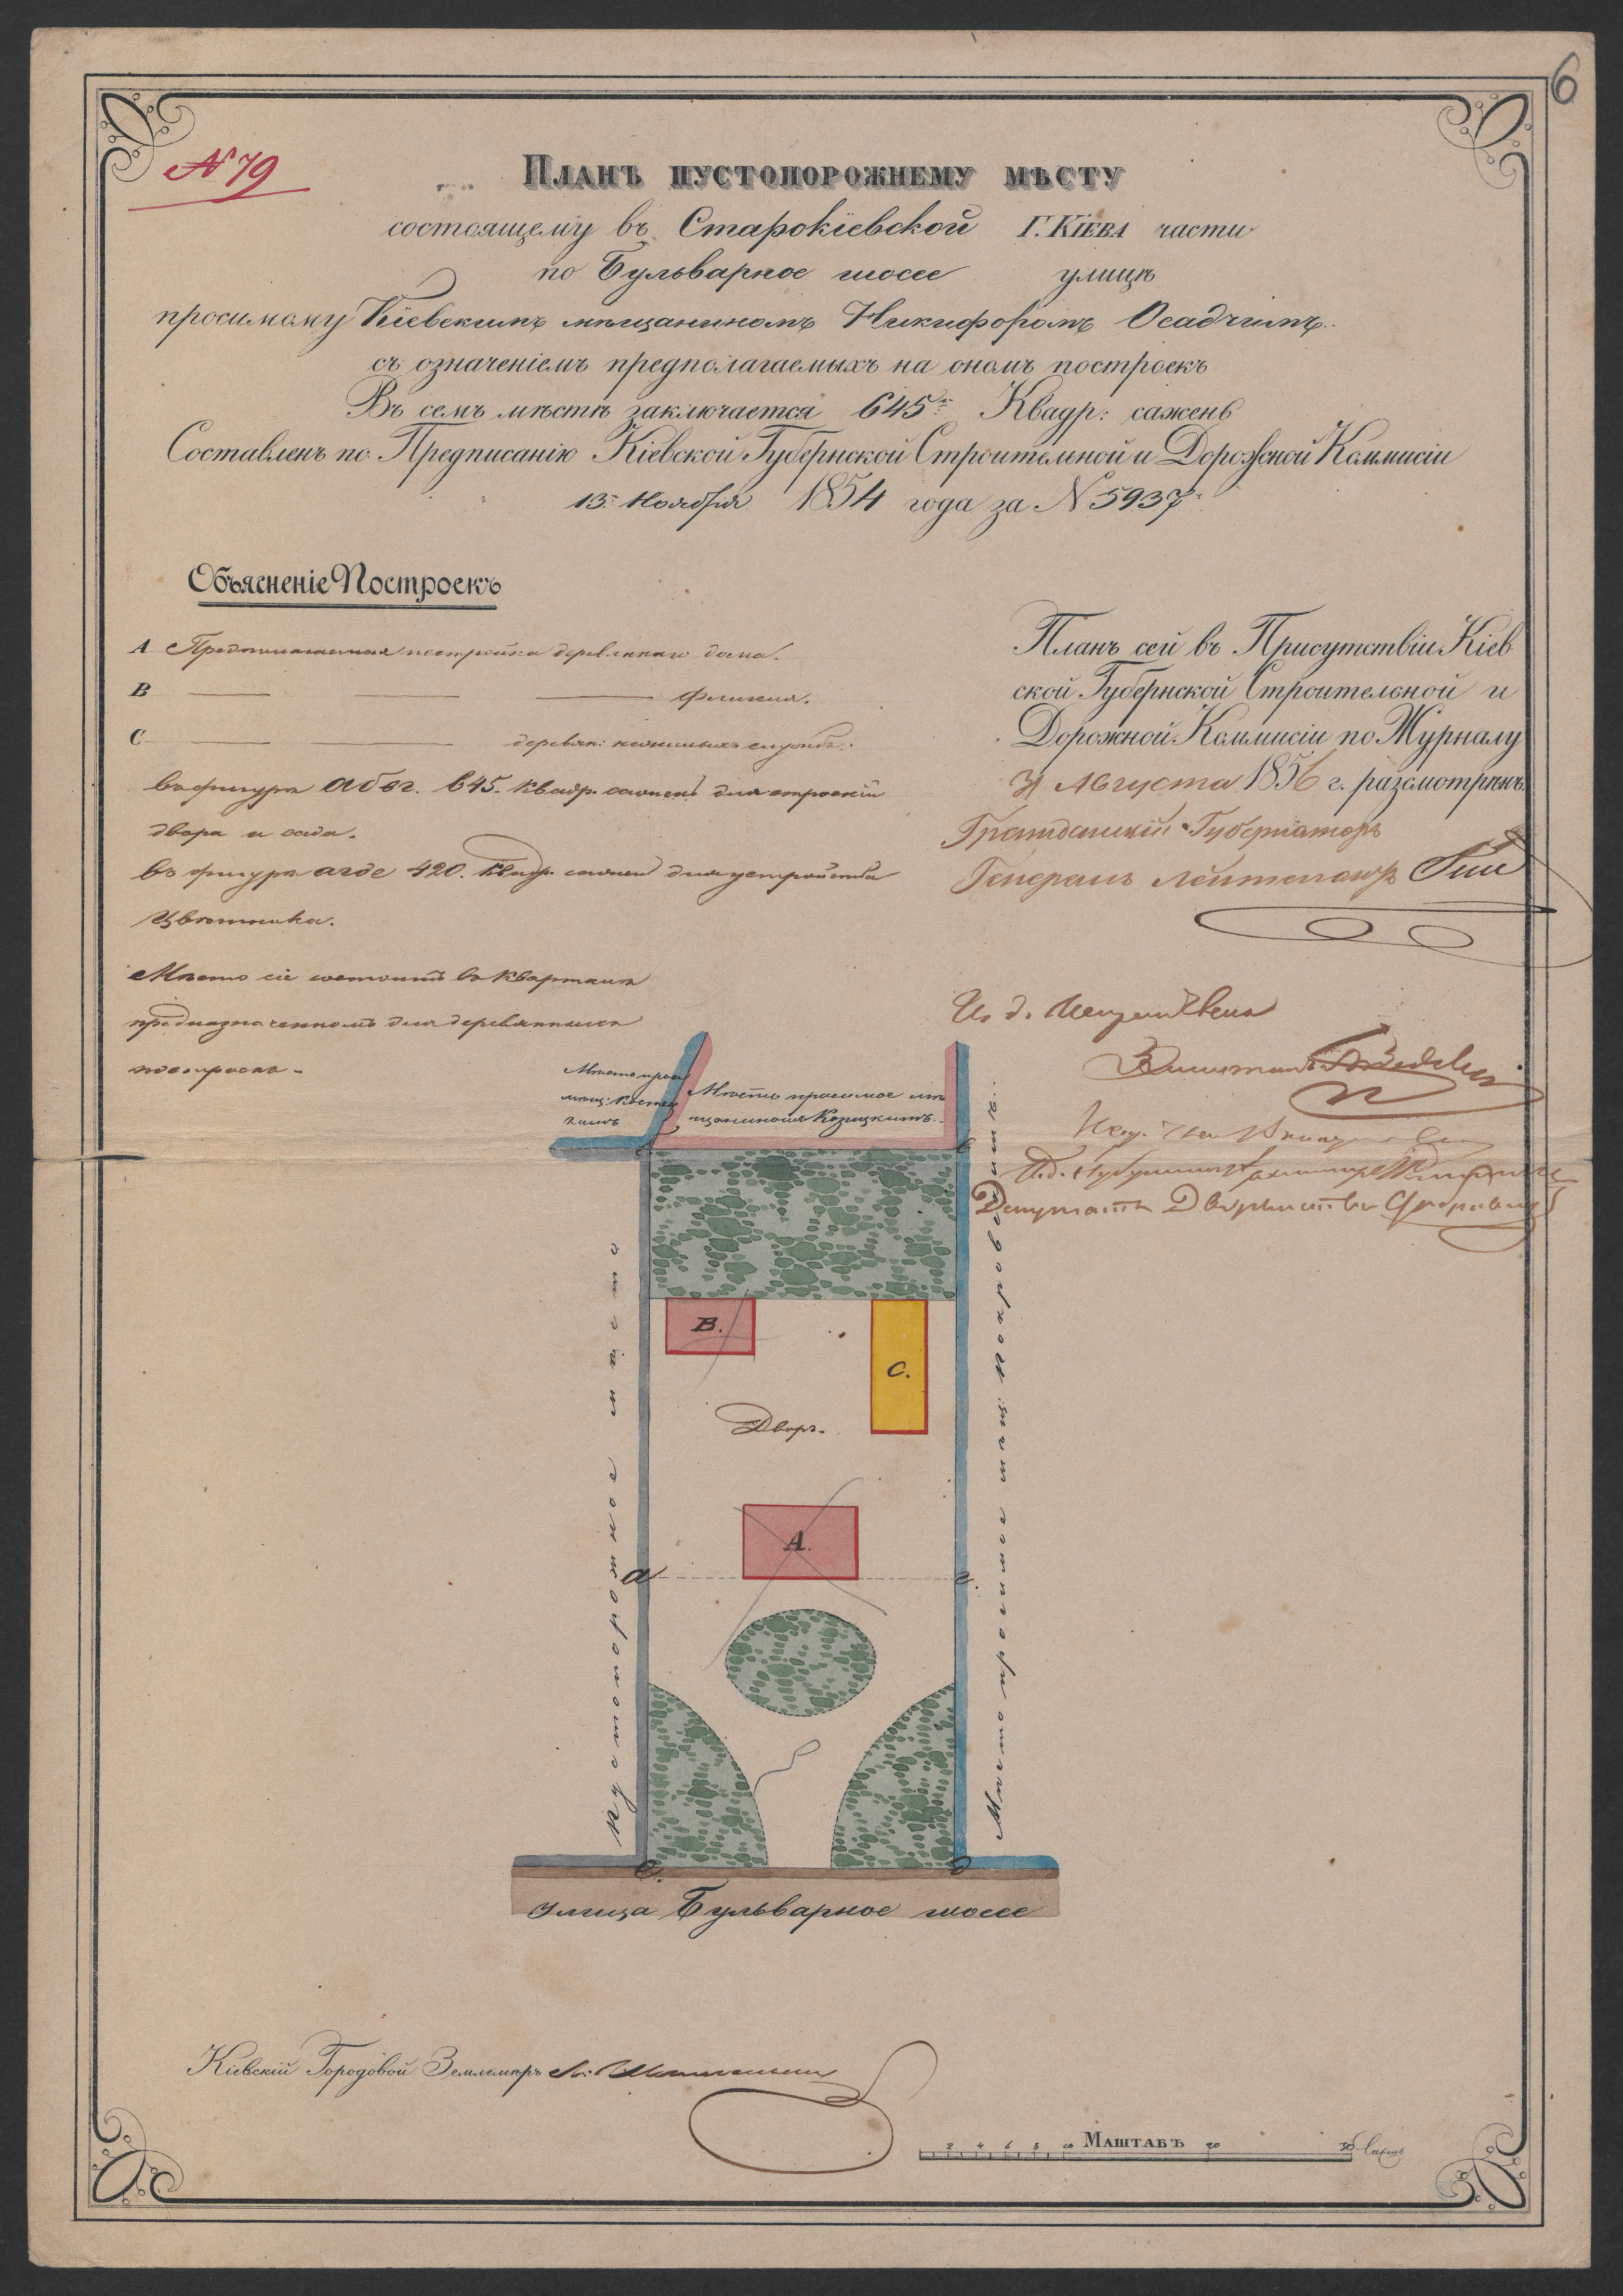 6
N 79
Планъ пустопорожнему мѣсту
состоящему въ Старокіевской Г. Кіева части
по Бульварное шоссе улицѣ
просимому Кіевскимъ мѣщаниномъ Никифоромъ Осадчимъ.
съ означеніемъ предполагаемыхъ на ономъ построекъ
Въ семъ мѣстѣ заключается 645 Квадр: сажень
Составленъ по Предписанію Кіевской Губернской Строительной и Дорожной Коммисіи
13 Ноября 1854 года за N 5937
Объясненіе Построекъ
A Предполагаемая постройка деревяннаго дома.
B — — — Флигеля.
C — — деревян: нежилыхъ службъ.
въ фигурѣ абвг. 645. квадр. сажень для строеній
двора и сада.
въ фигурѣ агде 420. квадр. сажень для устройства
Цвѣтника.
Мѣсто сіе состоитъ въ Кварталѣ
предназначенномъ для деревянныхъ
построекъ.
Планъ сей въ Присутствіи Кіев
ской Губернской Строительной и
Дорожной Коммисіи по Журналу
31 Августа 1856 г. разсмотрѣнъ.
Гражданскій Губернаторъ
Генералъ Лейтенантъ
И. д.
Депутатъ Дворянства
Мѣсто прос
мѣщ:
Мѣсто просимое мѣ
щаниномъ Козицкимъ.
B.
C.
Дворъ.
A.
а
г.
е.
д
Пустопорожнее мѣсто
Мѣсто просимое мѣщ: Покровскимъ.
улица Бульварное шоссе
Кіевскій Городовой Землемѣръ
2 4 6 8 10 Маштабъ 20 30 Сажень